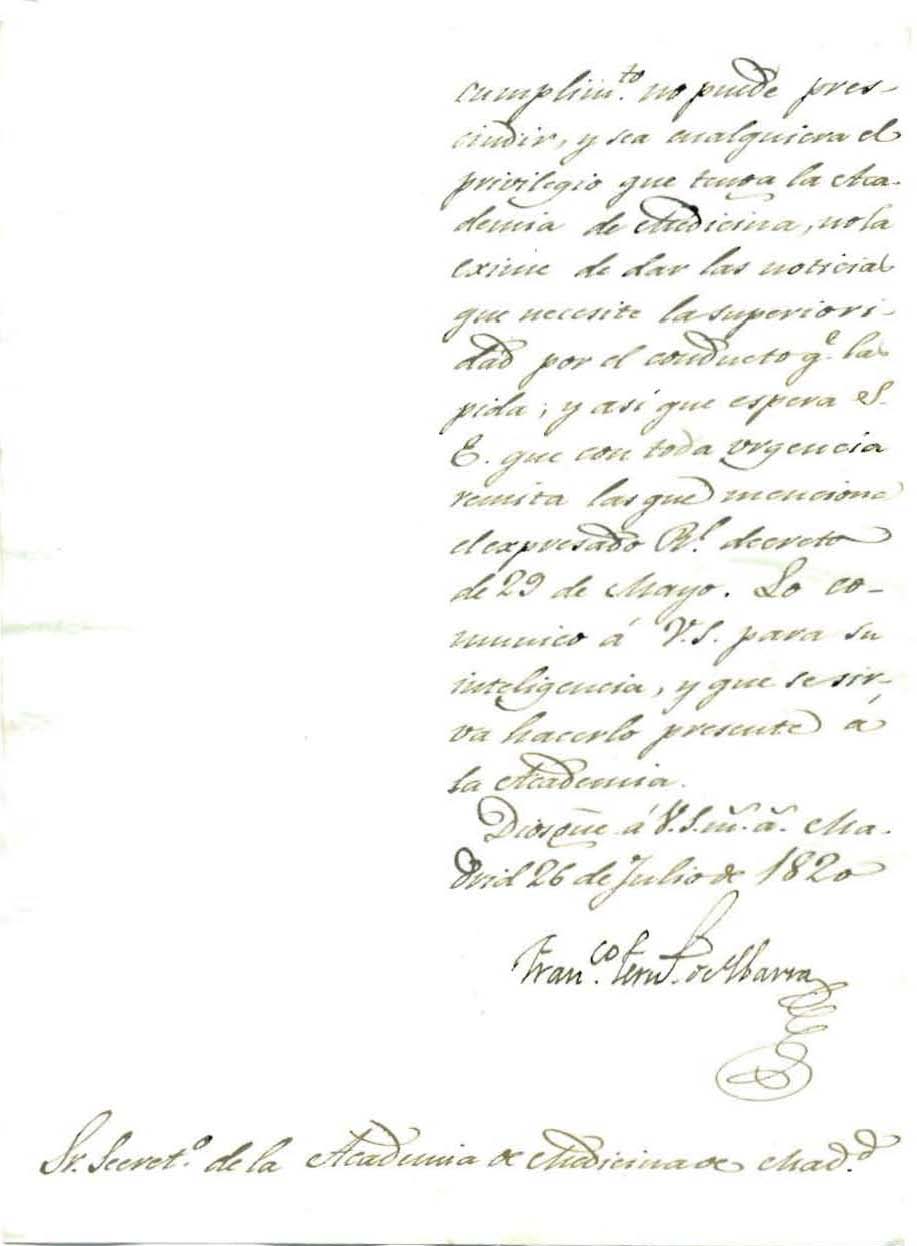 cumplim.to no puede pres-
cindir, y sea cualquiera el
privilegio que tenga la Aca-
demia de Medicina, no la
exime de dar las noticias
que necesite la superiori-
dad por el conducto q.e las
pida; y así que espera S.
E. que con toda urgencia
remita las que menciona
el expresado R.l decreto
de 29 de Mayo. Lo co-
munico á V.S. para su
inteligencia, y que se sir-
va hacerlo presente á
la Academia.
Dios gūe á V.S. m.s a.s Ma-
drid 26 de Julio de 1820
Fran.co Fern.z de Ibarra
Sr. Secret.o de la Academia de Medicina de Mad.d